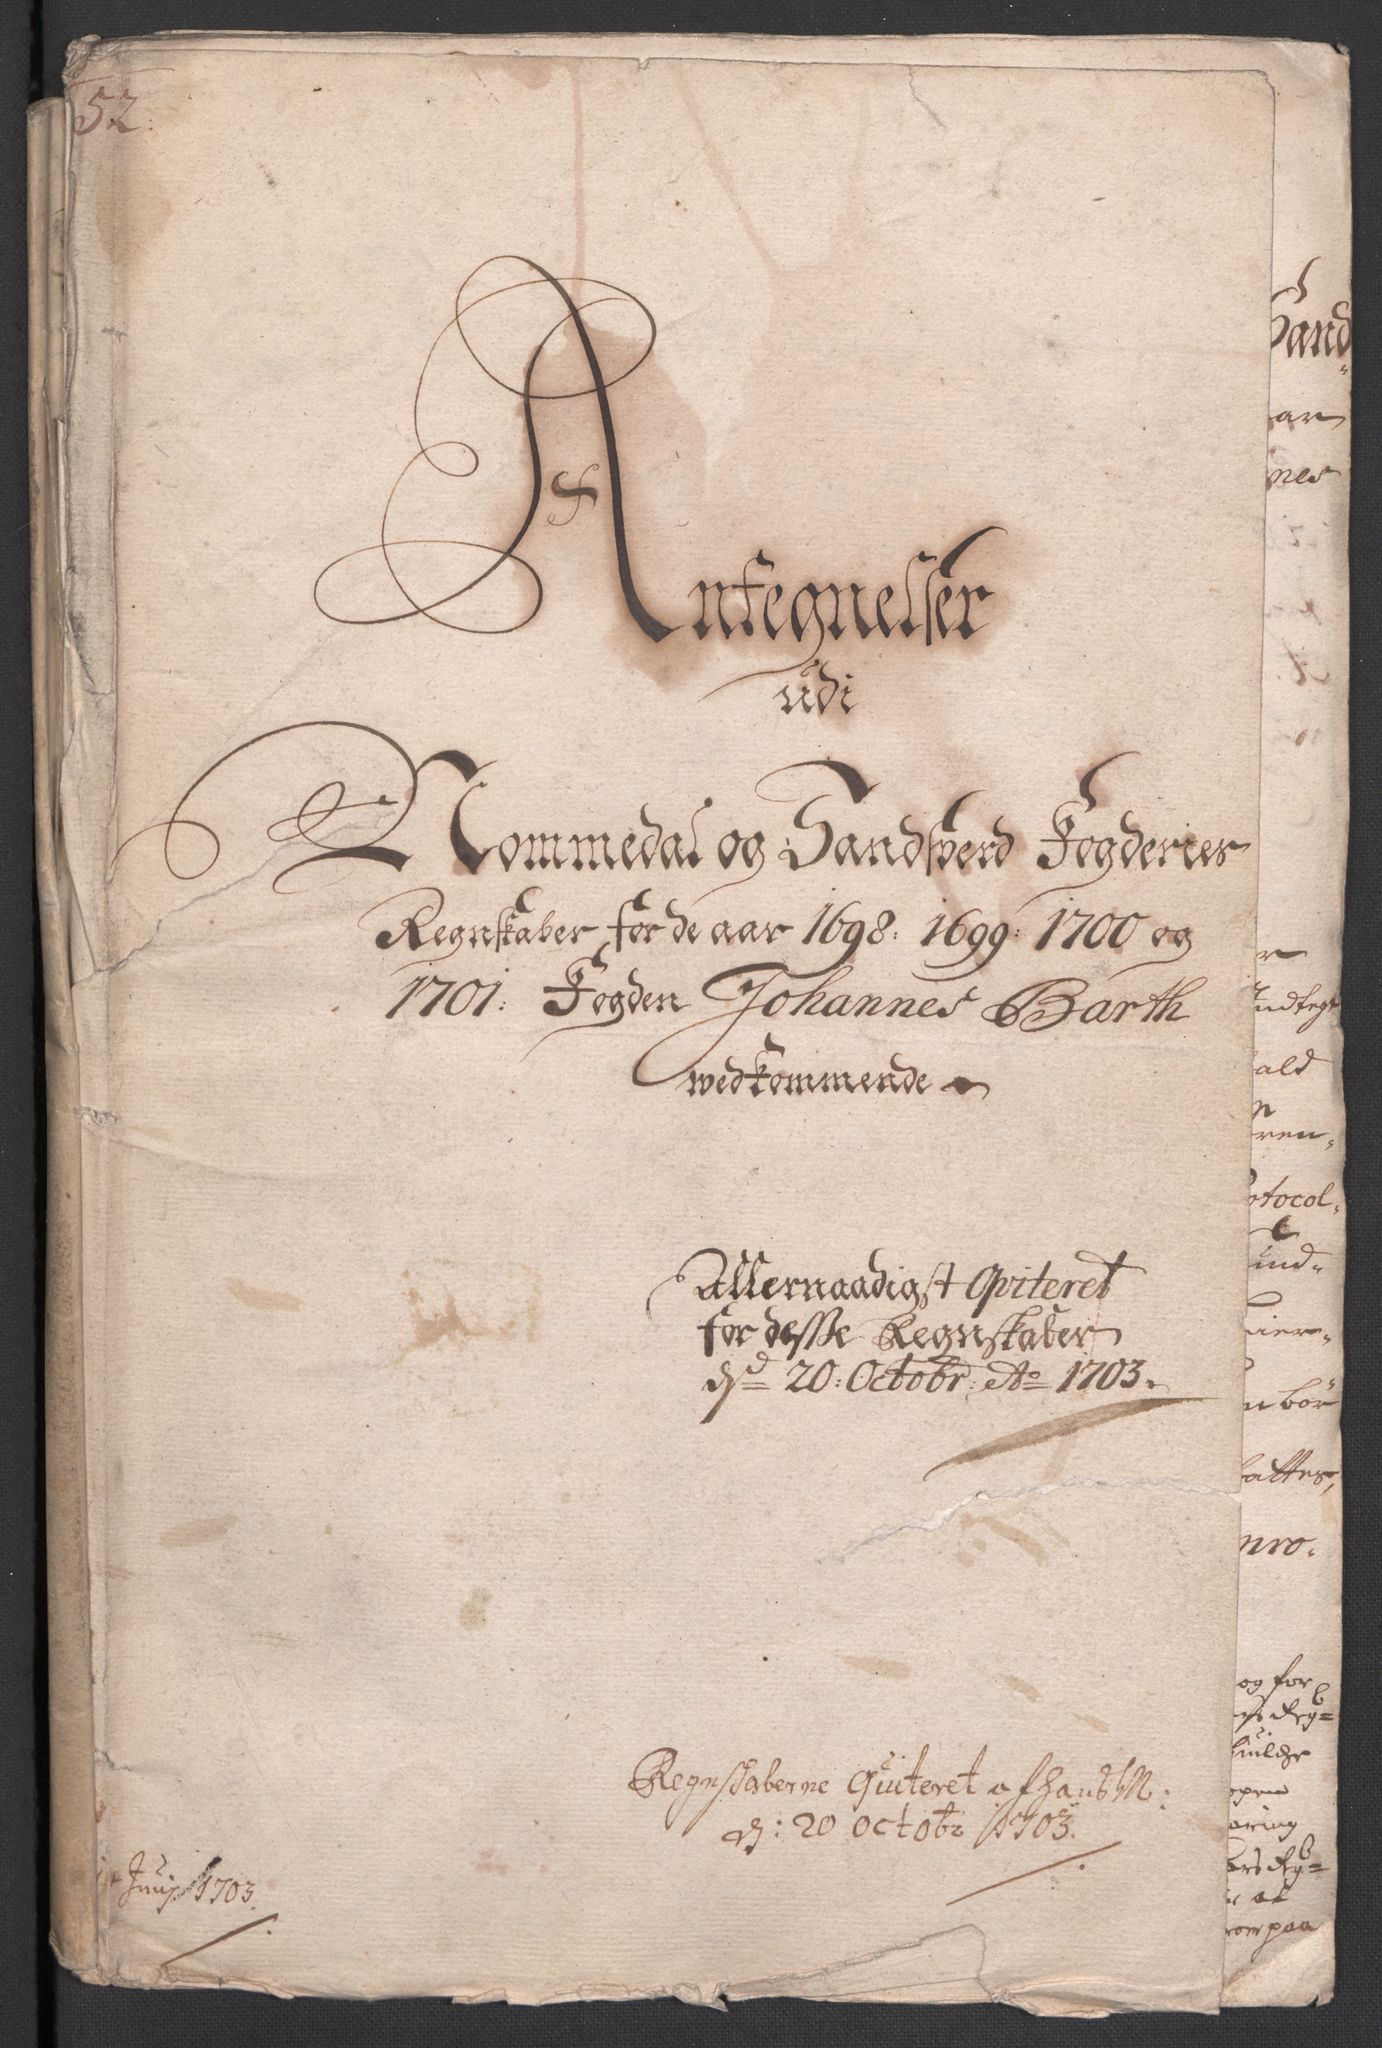 52.
Antegnelser
udi
Nommedal og Sandsverd Fogderies
Regnskaber for de aar 1698. 1699: 1700 og
1701: Fogden Johannes Barth
wedkommende
Allernaadigst Qviteret
for desse Regnskaber
dñ 20: Octobr: Ao 1703.
Regnskaberne Quiteret af hans M:
d: 20 octobr 1703.
Junij 1703.
Sand
ar
nes
ald
ren-
otocol-
und-
ier-
n bör
attes,
nro.
og for
Reg=
open
aring
Reg=
at
rom paa